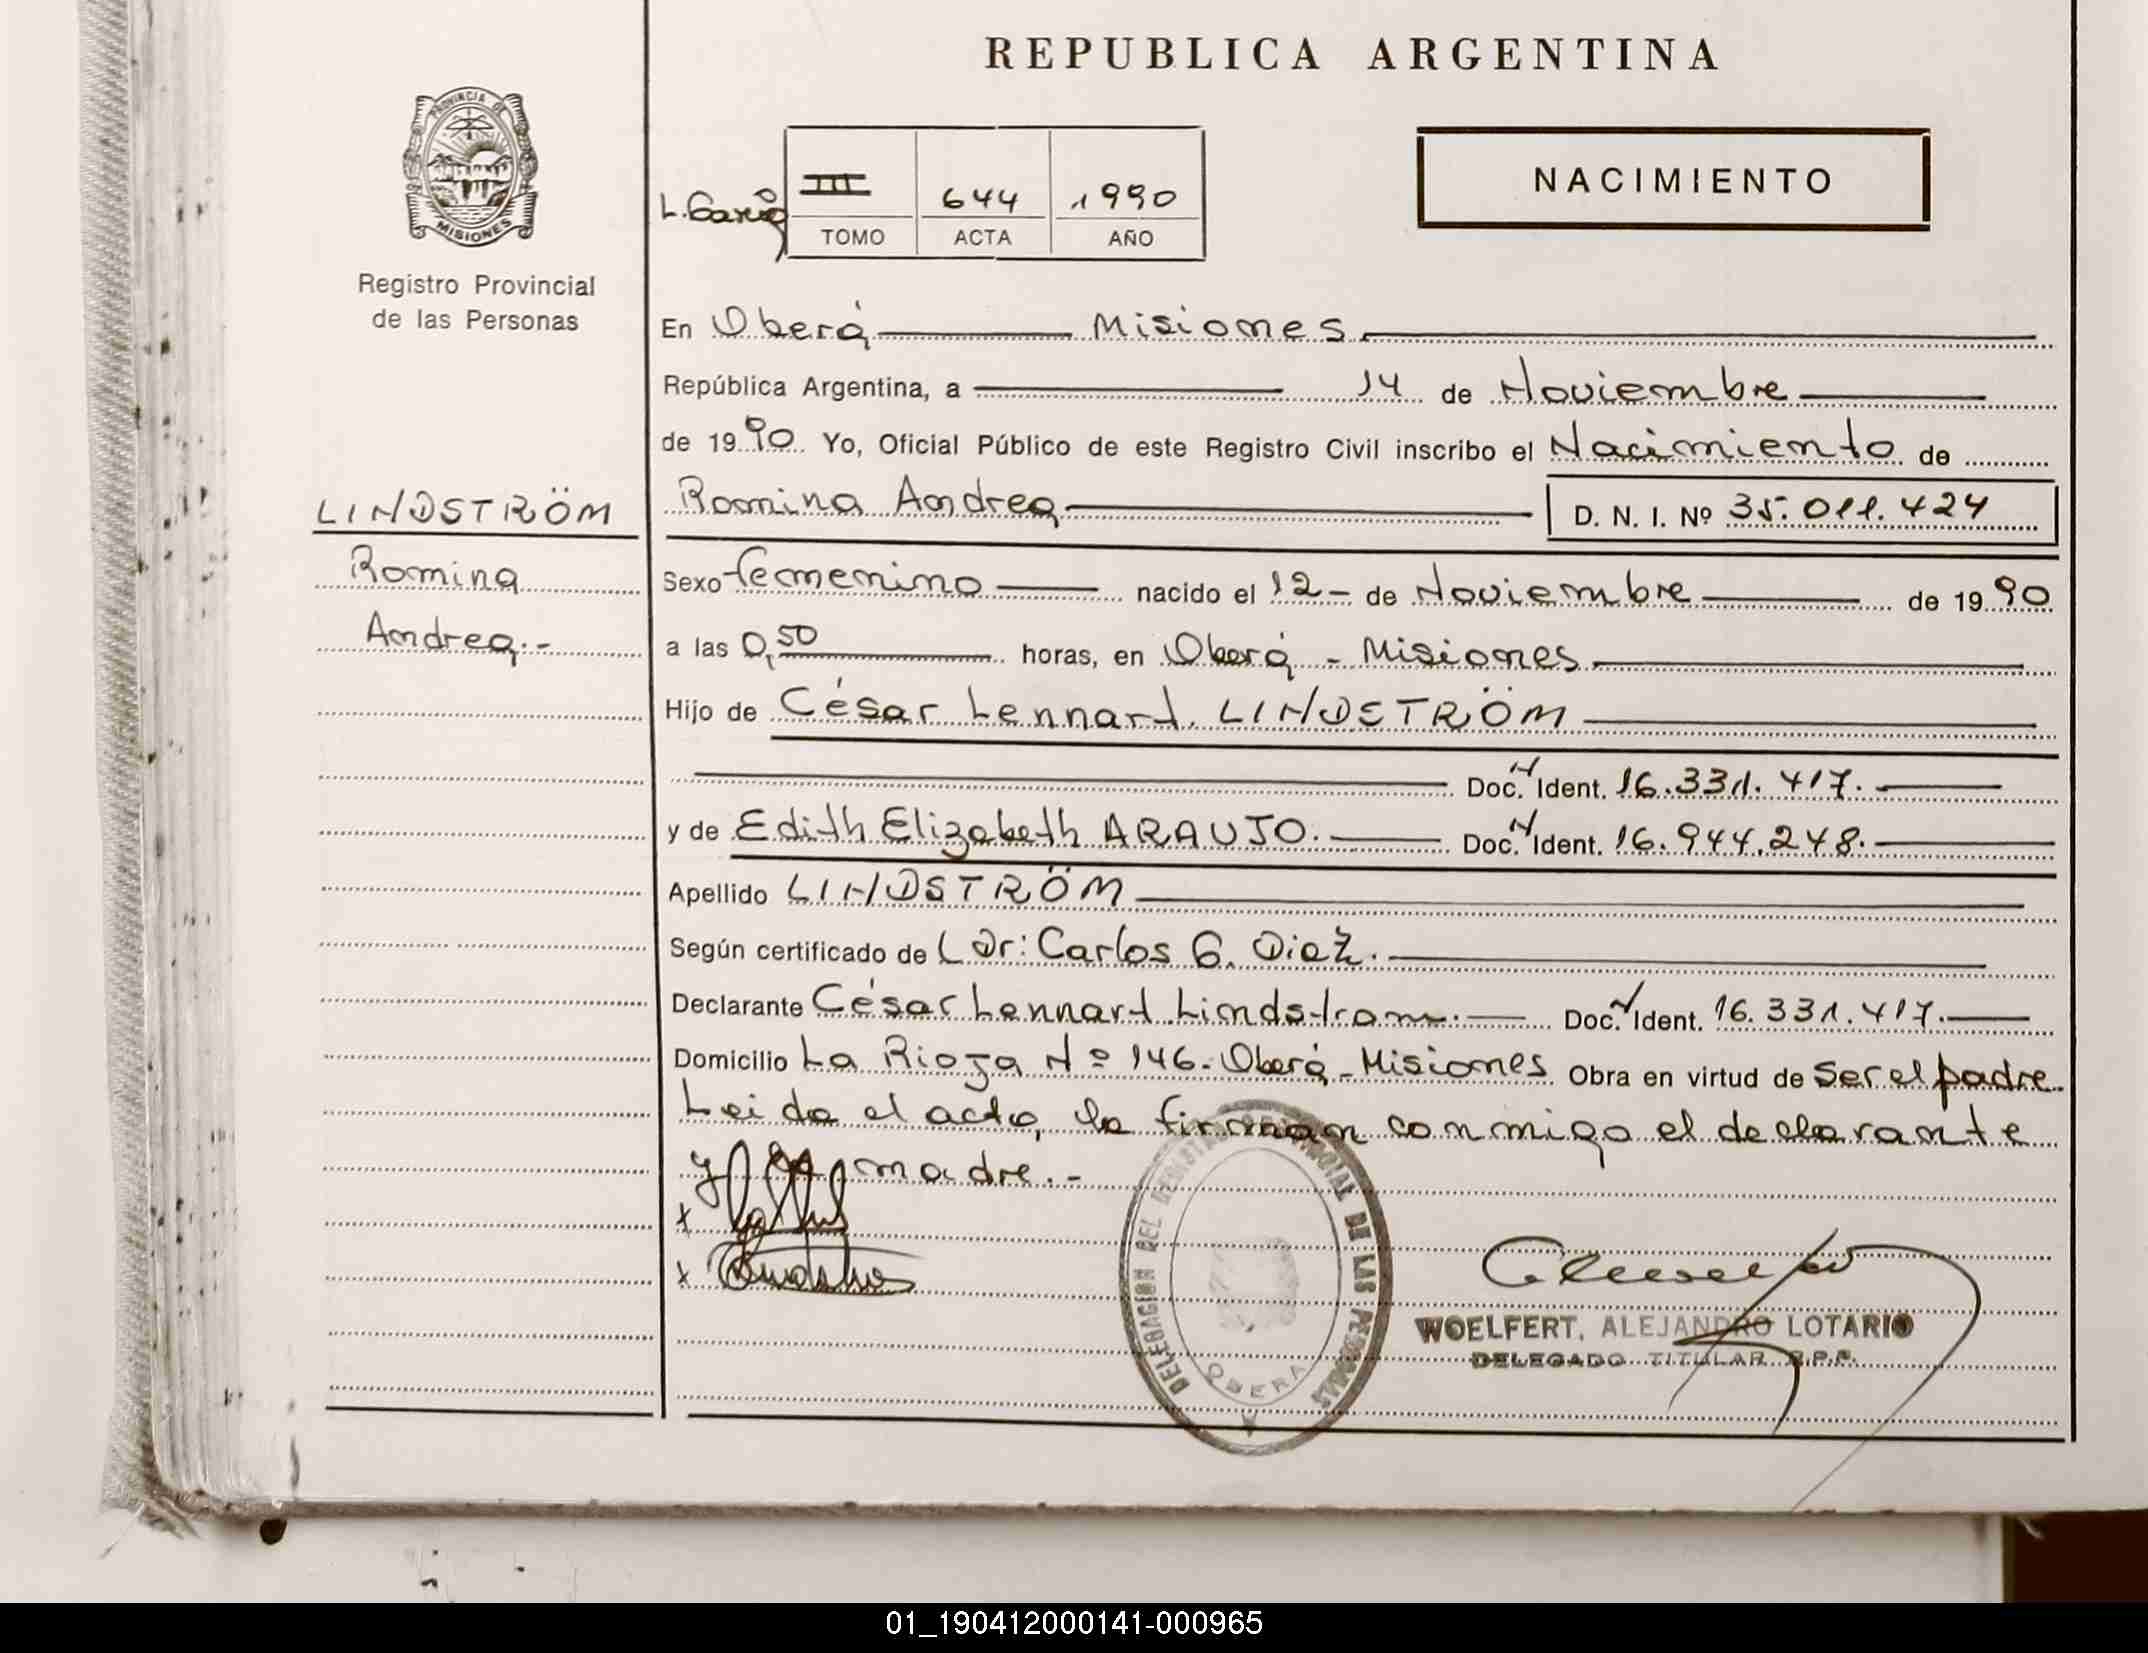 REPUBLICA ARGENTINA
PROVINCIA DE
MISIONES
Registro Provincial
de las Personas
L. García
III 644 1990
TOMO ACTA AÑO
NACIMIENTO
En Oberá Misiones
República Argentina, a 14 de Noviembre
de 1990. Yo, Oficial Público de este Registro Civil inscribo el Nacimiento de
LINDSTRÖM
Romina
Andrea.-
Romina Andrea D. N. I. Nº 35.011.424
Sexo femenino nacido el 12- de Noviembre de 1990
a las 0,50 horas, en Oberá - Misiones
Hijo de César Lennart LINDSTRÖM
Doc. N Ident. 16.331.417.
y de Edith Elizabeth ARAUJO. Doc. N Ident. 16.944.248.
Apellido LINDSTRÖM
Según certificado de Dr: Carlos G. Diaz.
Declarante César Lennart Lindstrom. Doc. N Ident. 16.331.417.
Domicilio La Rioja Nº 146. Oberá - Misiones Obra en virtud de Ser el padre.
Leida el acta, la firman conmigo el declarante
y la madre.-
x
x
DELEGACION DEL REGISTRO PROVINCIAL DE LAS PERSONAS
OBERA
WOELFERT, ALEJANDRO LOTARIO
DELEGADO TITULAR R.P.P.
01_190412000141-000965